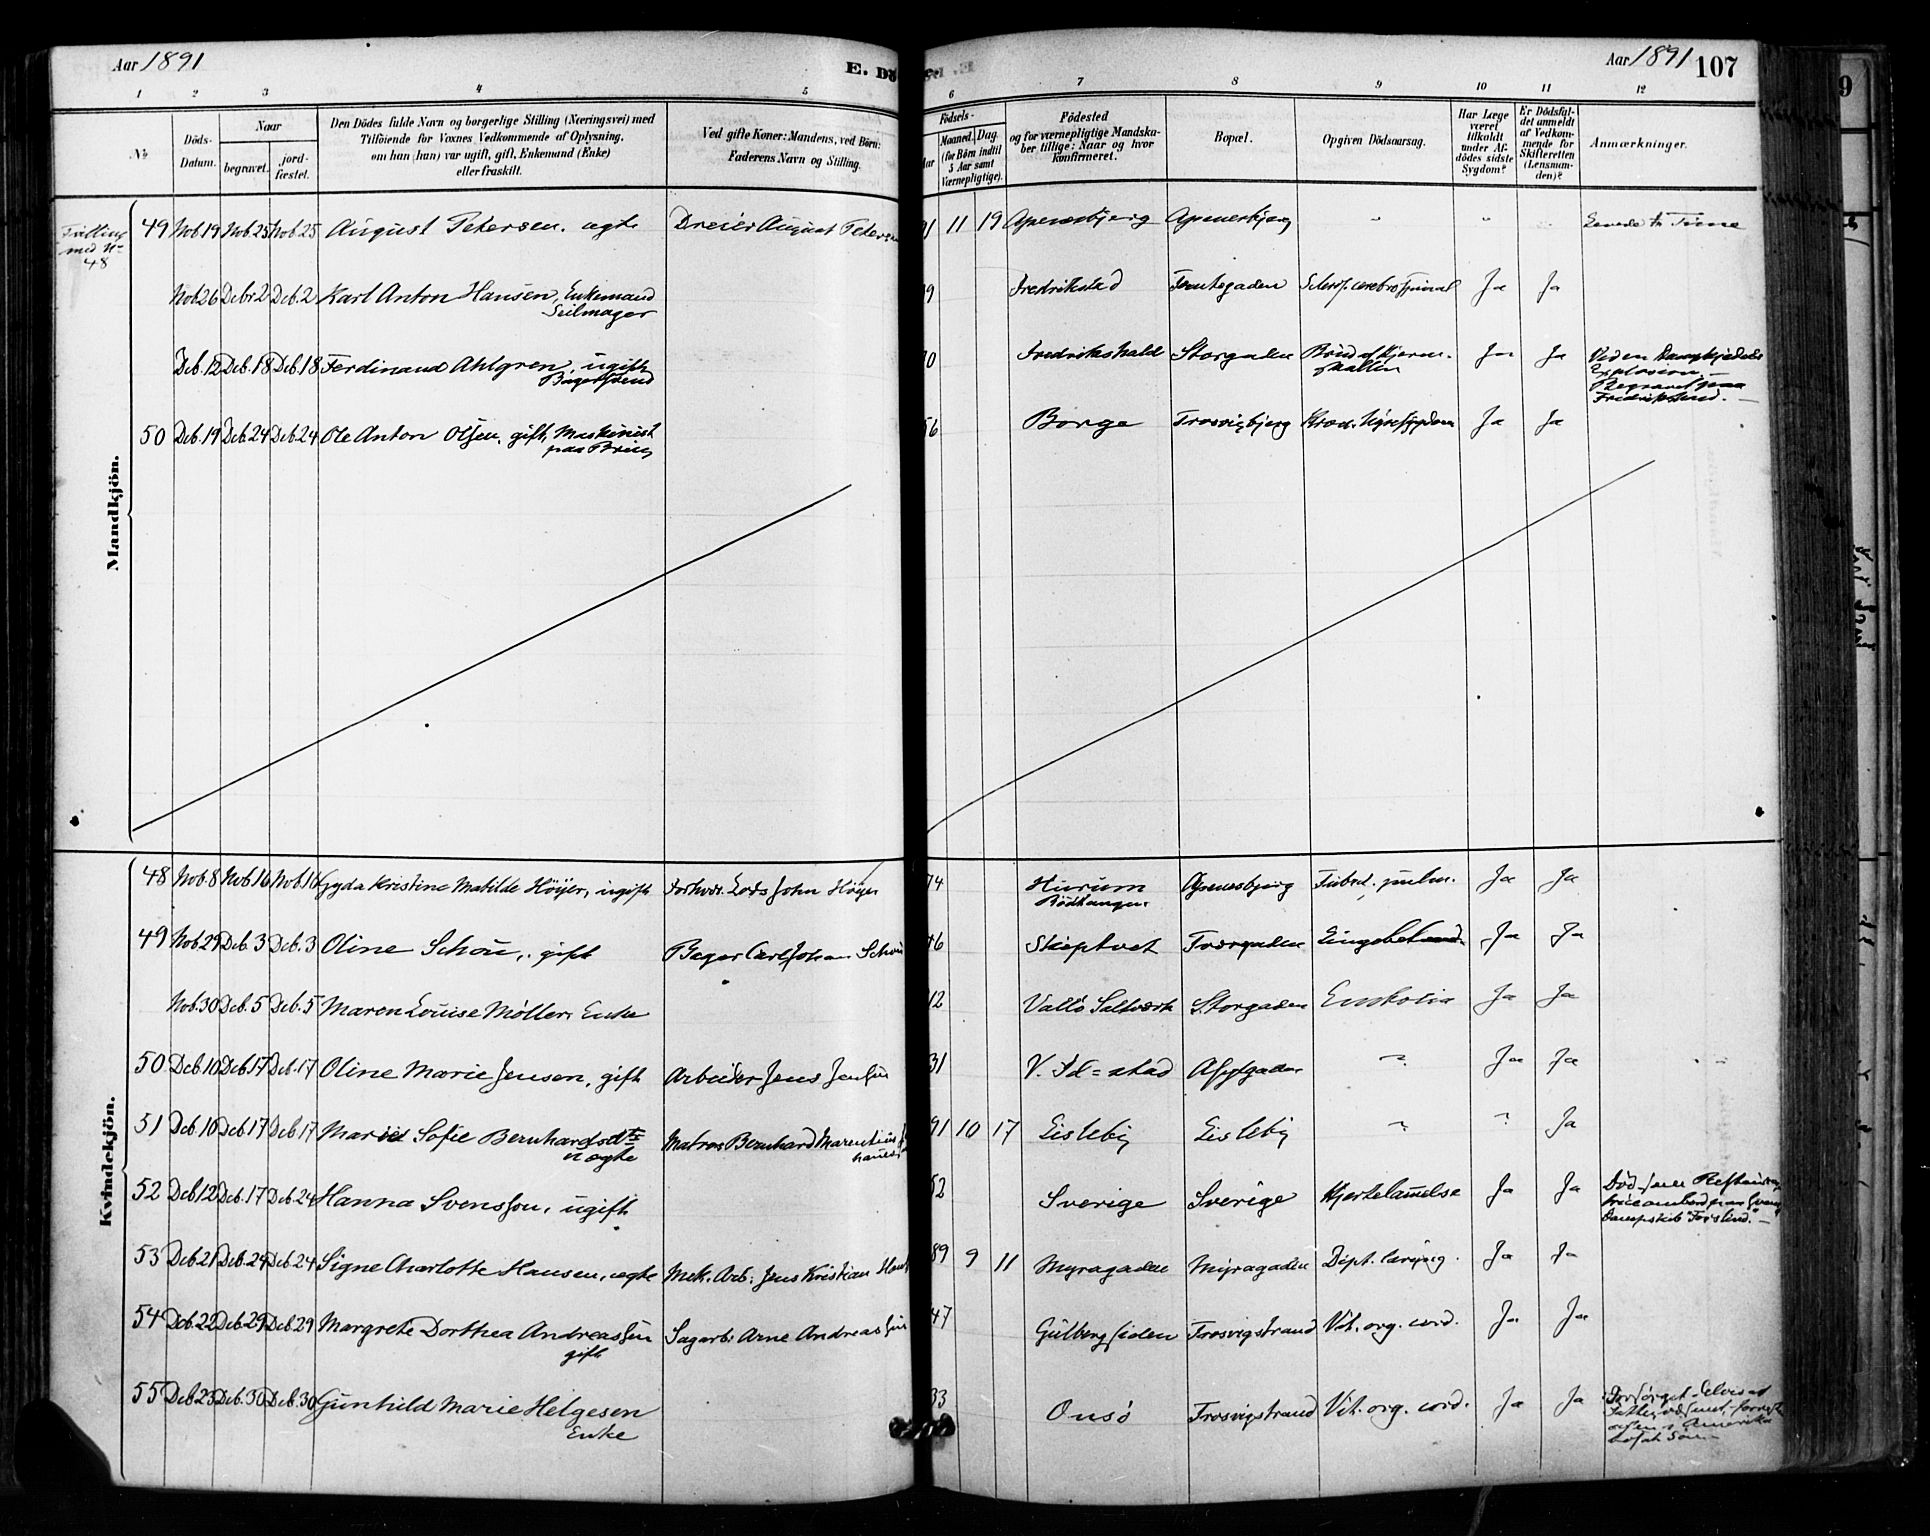 Aar 1891
E. Dö
Aar 1891 107
1 2 3 4 5 6 7 8 9 10 11 12
No. Döds-Datum. Naar begravet. jord-fæstet. Den Dödes fulde Navn og borgerlige Stilling (Næringsvei) med Tilföiende for Voxnes Vedkommende af Oplysning, om han (hun) var ugift, gift, Enkemand (Enke) eller fraskilt. Ved gifte Koner: Mandens, ved Börn: Faderens Navn og Stilling.
Födsels- Aar Maaned. Dag. (for Börn indtil 5 Aar samt Værnepligtige). Födested og for værnepligtige Mandskaber tillige: Naar og hvor konfirmeret. Bopæl. Opgiven Dödsaarsag. Har Læge været tilkaldt under Afdödes sidste Sygdom? Er Dödsfaldet anmeldt af Vedkommende for Skifteretten (Lensmanden)? Anmærkninger.
Mandkjön.
Tvilling med No 48
49 Nov. 19 Nov. 25 Nov. 25 August Petersen. ægte Dreier August Petersen 91 11 19 Apenesbjerg Apenesbjerg " " Levede ½ Time
Nov. 26 Debr 2 Deb. 2 Karl Anton Hansen, Enkemand Seilmager 9 Fredrikstad Færgegaden Ja Ja
Deb. 12 Deb. 18 Deb. 18 Ferdinand Ahlgren, ugift 0 Fredrikshald Storgaden Brud af Hjerneskallen Ja Ja Ved en Dampkjedels Explosion. Begravet paa Fredrikshald.
50 Deb. 19 Deb. 24 Deb. 24 Ole Anton Olsen, gift, Maskinist 56 Borge Trosvigbjerg Kron. Nyresygdom Ja Ja
Kvindekjön.
48 Nov. 8 Nov. 16 Nov. 16 Gyda Kristine Matilde Höyer, ugift Forhv. Lods John Höyer 74 Hurum Rödtangen Apenesbjerg Tuberk. pulm. Ja Ja
49 Nov. 29 Deb. 3 Deb. 3 Oline Schou, gift Bager Carl Johan Schou 46 Skiptvet Tværgaden Lungebetænd. Ja Ja
Nov. 30 Deb. 5 Deb. 5 Maren Louise Möller, Enke 12 Vallö Saltværk Storgaden Ja Ja
50 Deb. 10 Deb. 17 Deb. 17 Oline Marie Jensen, gift Arbeider Jens Jensen 31 V. Fd=stad Asylgaden " Ja Ja
51 Deb. 10 Deb. 17 Deb. 17 Marie Sofie Bernhardsdtr uægte Matros Bernhard Marentius 91 10 17 Lisleby Lisleby " " Ja
52 Deb. 12 Deb. 17 Deb. 24 Hanna Svensson, ugift 52 Sverige Sverige Hjertelamelse Ja Ja Död som ombord paa Svensk Dampskib
53 Deb. 21 Deb. 24 Deb. 24 Signe Charlotte Hansen, ægte Mek. Arb. Jens Kristian Hansen 89 9 11 Myragaden Myragaden Dipt. laryng. Ja Ja
54 Deb. 22 Deb. 29 Deb. 29 Margrete Dorthea Andreassen gift Sagarb. Arne Andreassen 47 Gulbergsiden Trosvigstrand Vit. org. cord. Ja Ja
55 Deb. 23 Deb. 30 Deb. 30 Gunhild Marie Helgesen Enke 33 Onsö Trosvigstrand Vit. org. cord. Ja Ja Forsörget delvis af Amerika bosat Sön